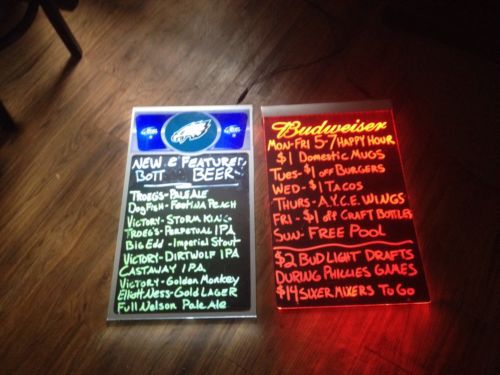 NEW & FEATURED
BOTT BEER
TROEG'S-PALE ALE
DOGFISH-FESTINA PEACH
VICTORY-STORM KING
TROEG'S-PERPETUAL IPA
BIG EDD-IMPERIAL STOUT
VICTORY-DIRTWOLF IPA
CASTAWAY IPA
VICTORY-GOLDEN MONKEY
ELIOTT NESS-GOLD LAGER
FULL NELSON PALE ALE
Budweiser
MON-FRI 5-7 HAPPY HOUR
$1 DOMESTIC MUGS
TUES-$1 OFF BURGERS
WED-$1 TACOS
THURS-A.Y.C.E. WINGS
FRI-$1 off CRAFT BOTTLES
SUN-FREE POOL
$2 BUD LIGHT DRAFTS
DURING PHILLIES GAMES
$14 SIXER MIXERS TO GO